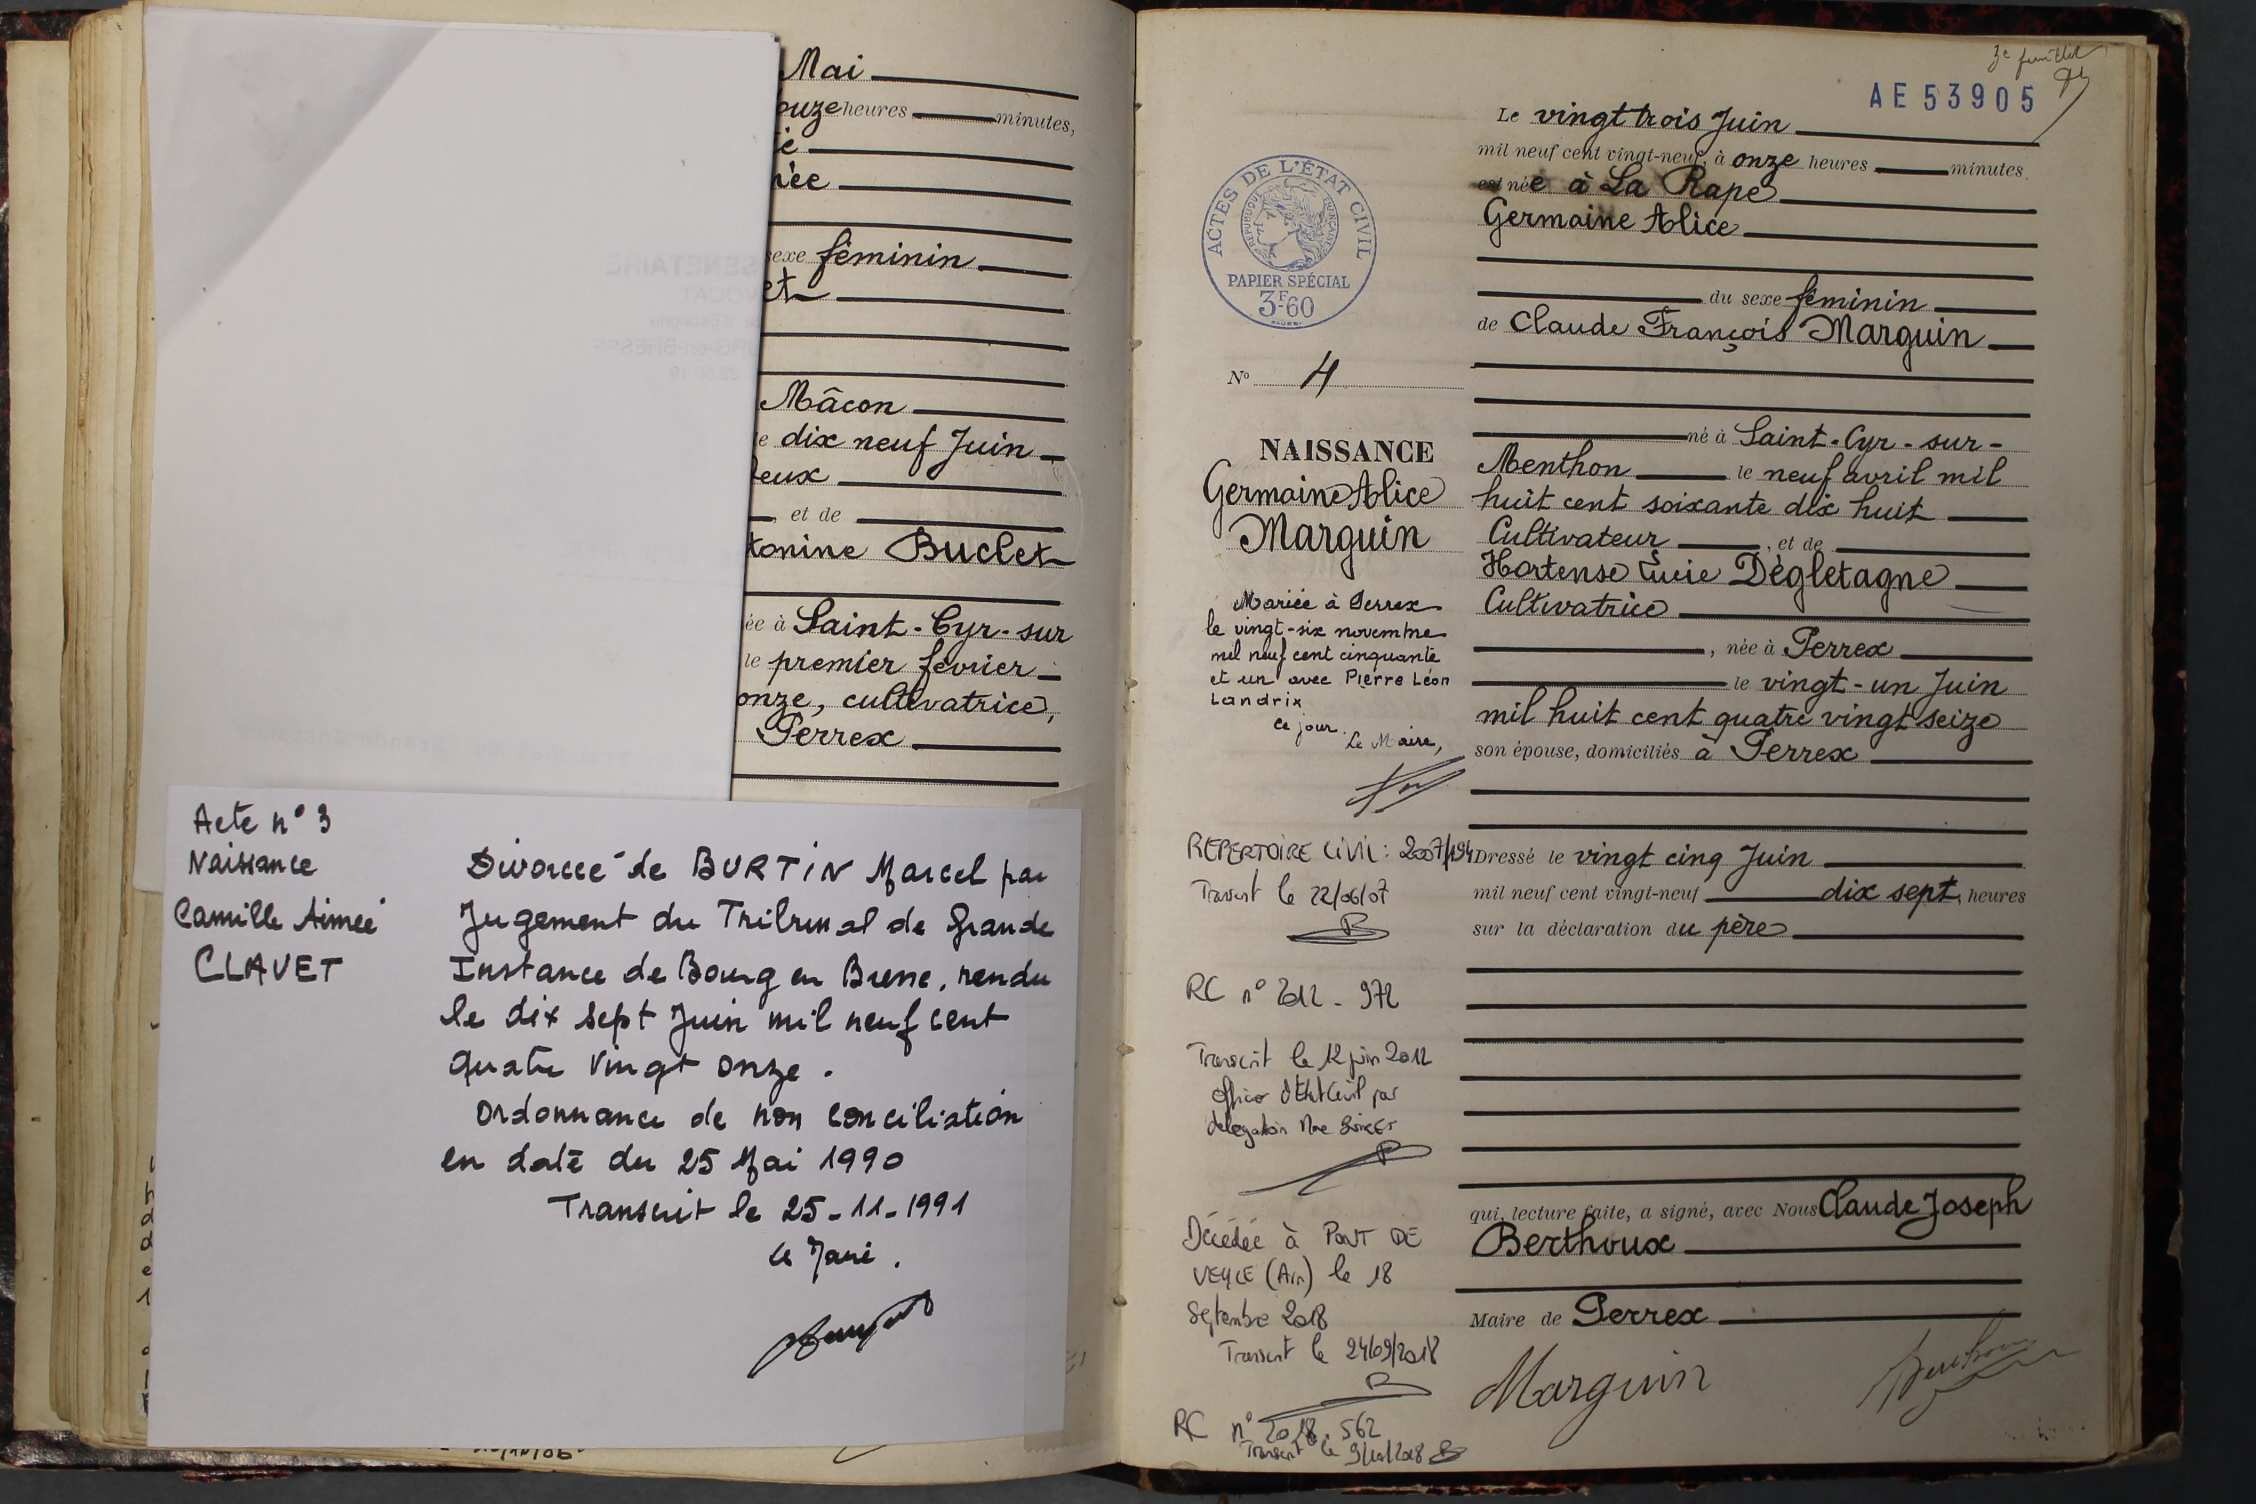 Mai
ouze heures minutes,
née
sexe féminin
et
Mâcon
le dix neuf Juin
deux
, et de
tonine Buclet
ée à Saint-Cyr-sur
le premier février
onze, cultivatrice,
Perrex
Acte n° 3
Naissance
Camille Aimée
CLAVET
Divorcée de BURTIN Marcel par
Jugement du Tribunal de Grande
Instance de Bourg en Bresse, rendu
le dix sept Juin mil neuf cent
quatre vingt onze.
Ordonnance de non conciliation
en date du 25 Mai 1990
Transcrit le 25-11-1991
Le Maire.
3e feuillet
AE 53905
ACTES DE L'ÉTAT CIVIL
RÉPUBLIQUE FRANÇAISE
PAPIER SPÉCIAL
3F-60
N° 4
NAISSANCE
Germaine Alice
Marguin
Mariée à Perrex
le vingt-six novembre
mil neuf cent cinquante
et un avec Pierre Léon
Landrix
Ce jour.
Le Maire,
REPERTOIRE CIVIL: 2007/194
Transcrit le 22/06/07
RC n° 2012-972
Transcrit le 12 juin 2012
Officier d'Etat Civil par
délégation Mme
Décédée à PONT DE
VEYLE (Ain) le 18
Septembre 2018
Transcrit le 24/09/2018
RC n° 2018.562
Transcrit le
Le vingt trois Juin
mil neuf cent vingt-neuf, à onze heures minutes
est née à La Rape
Germaine Alice
du sexe féminin
de Claude François Marguin
né à Saint-Cyr-sur-
Menthon le neuf avril mil
huit cent soixante dix huit
Cultivateur , et de
Hortense Lucie Dégletagne
Cultivatrice
, née à Perrex
le vingt-un Juin
mil huit cent quatre vingt seize
son épouse, domiciliés à Perrex
Dressé le vingt cinq Juin
mil neuf cent vingt-neuf dix sept heures
sur la déclaration du père
qui, lecture faite, a signé, avec Nous Claude Joseph
Berthoux
Maire de Perrex
Marguin
Berthoux